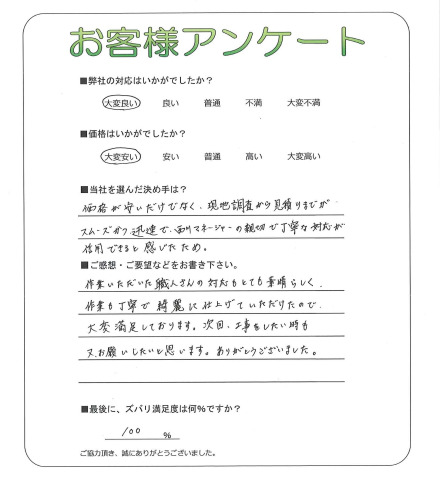 お客様アンケート
■弊社の対応はいかがでしたか?
大変良い 良い 普通 不満 大変不満
■価格はいかがでしたか?
大変安い 安い 普通 高い 大変高い
■当社を選んだ決め手は?
価格が安いだけでなく、現地調査から見積りまでが
スムーズかつ迅速で、マネージャーの親切で丁寧な対応が
信用できると感じたため。
■ご感想・ご要望などをお書き下さい。
作業いただいた職人さんの対応もとても素晴らしく、
作業も丁寧で綺麗に仕上げていただけたので、
大変満足しております。次回、工事をしたい時も
又、お願いしたいと思います。ありがとうございました。
■最後に、ズバリ満足度は何%ですか?
100 %
ご協力頂き、誠にありがとうございました。